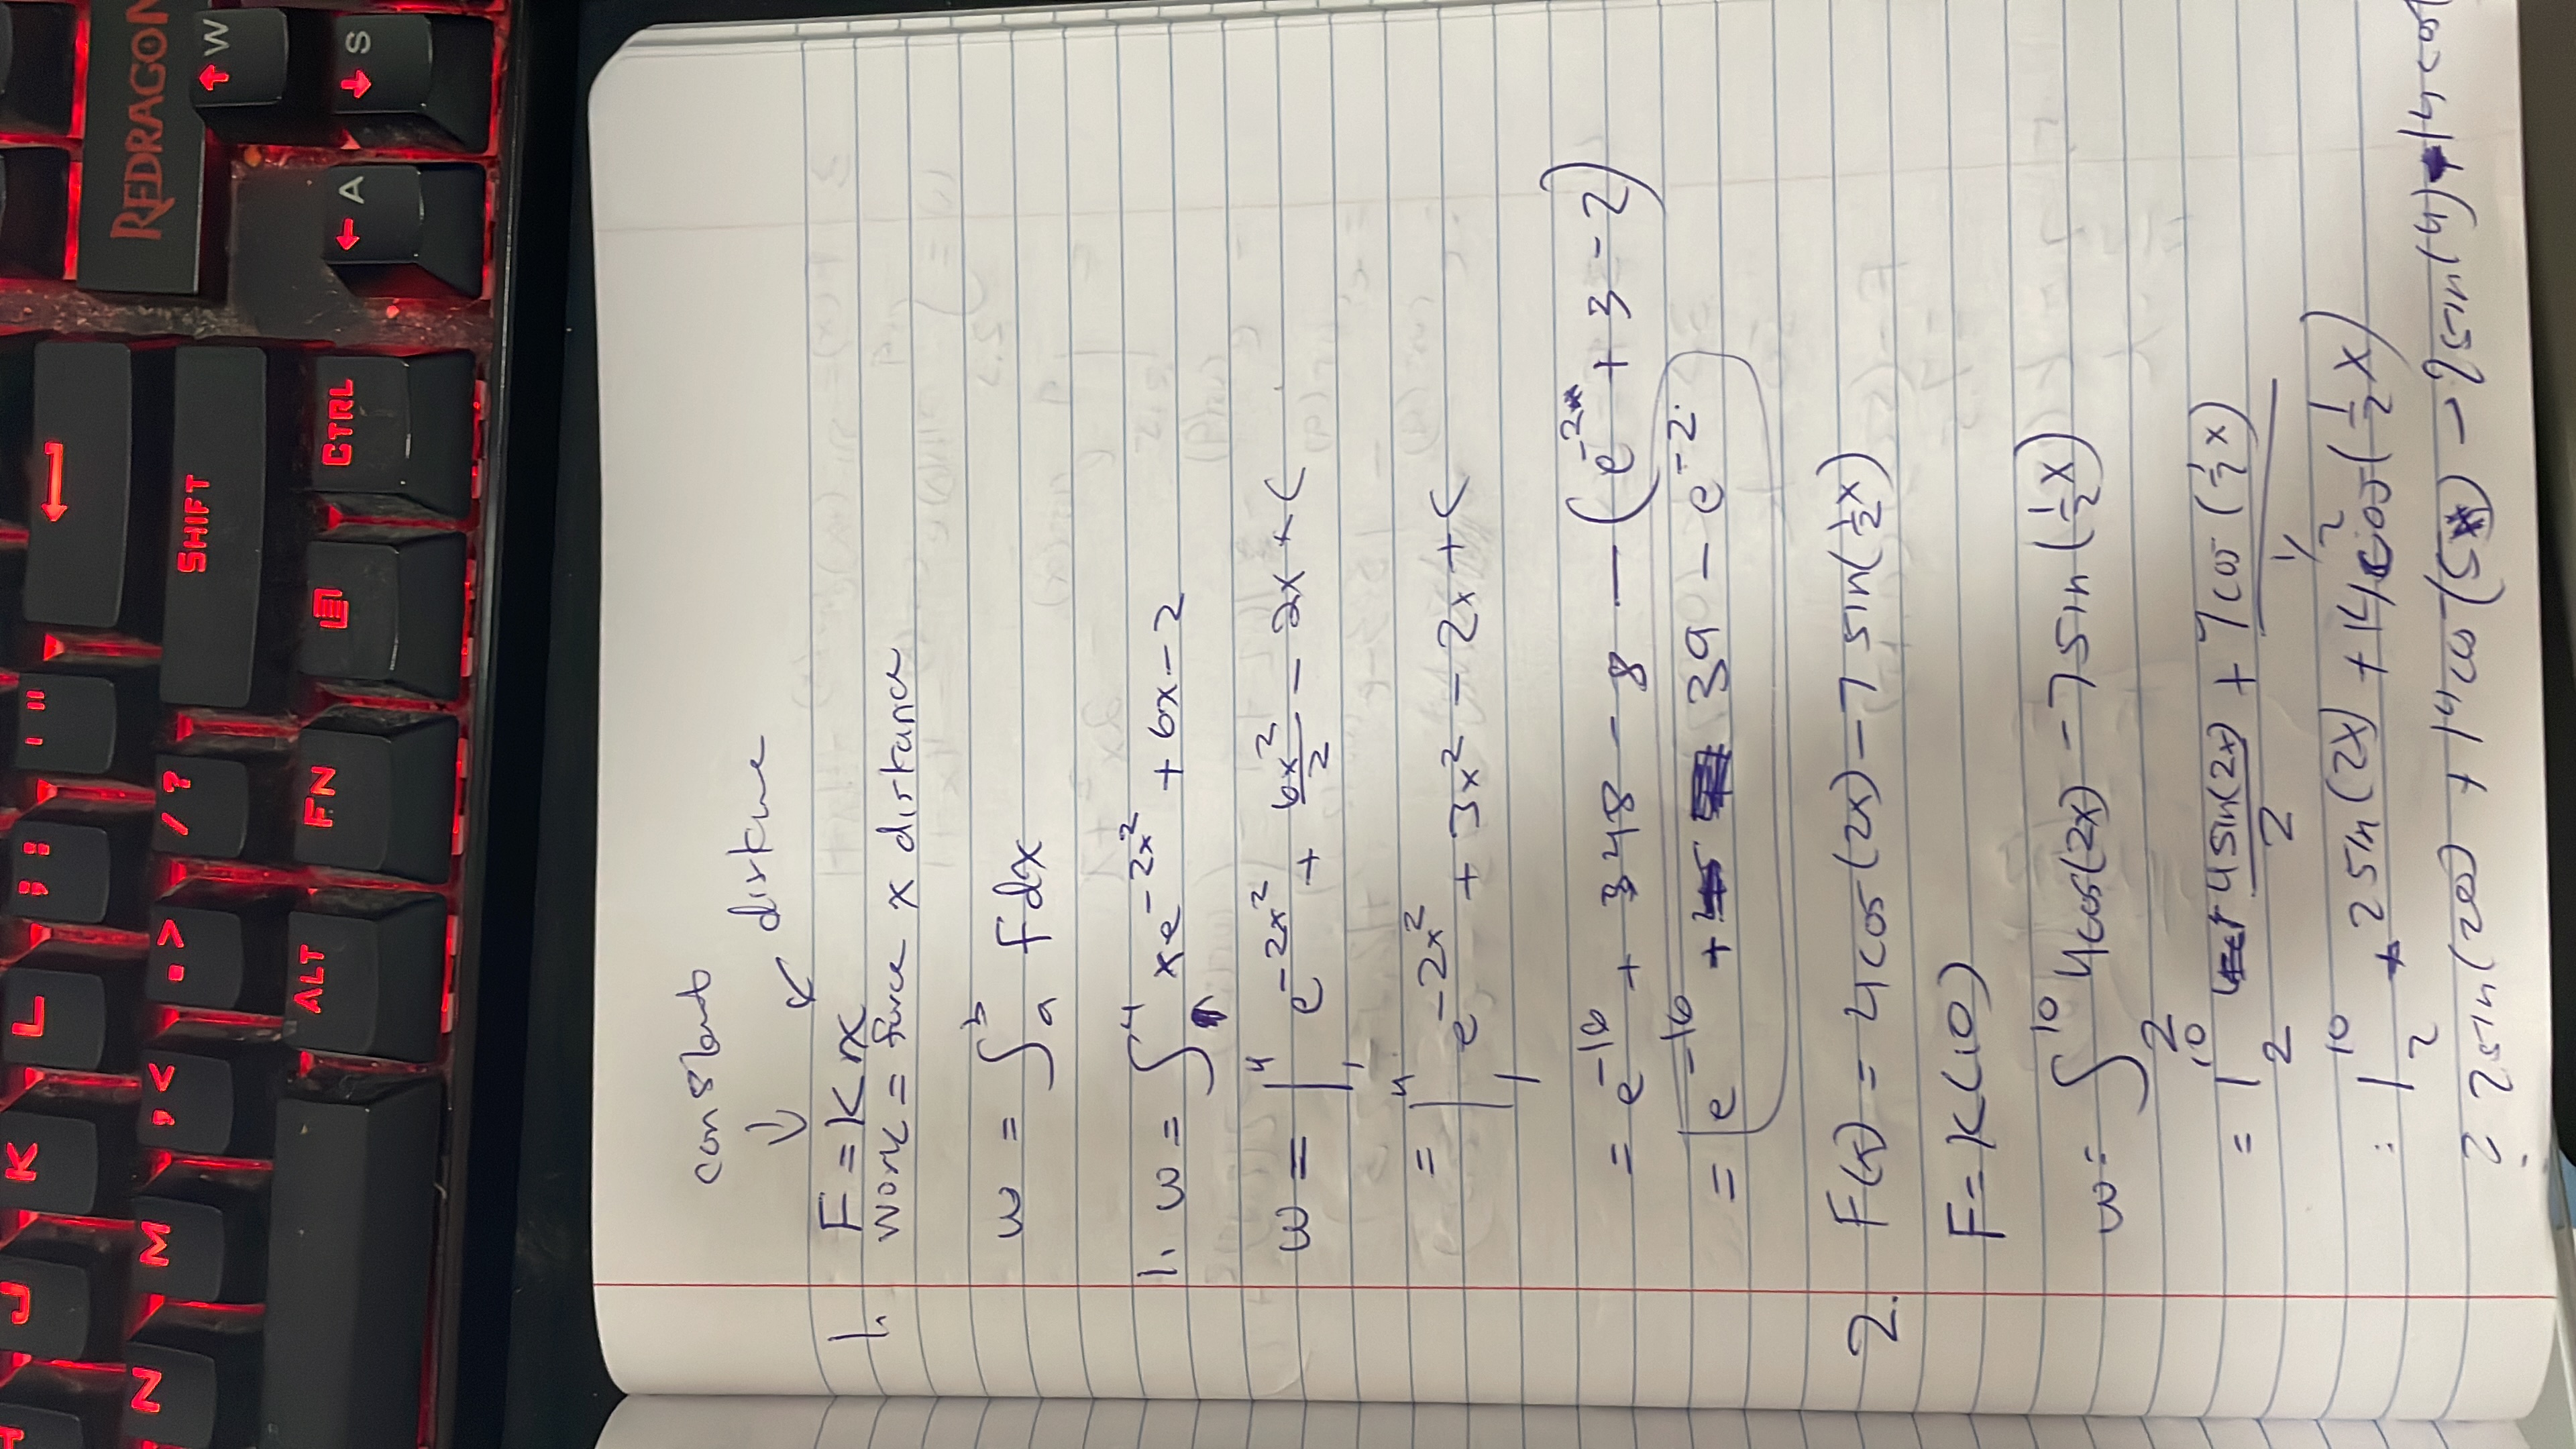 J K L ; : ' "
REDRAGON
N M , < . > / ? SHIFT
W
ALT FN CTRL A S
constant
distance
1. F = Kx
Work = force x distance
w = ∫_a^b F dx
1. w = ∫_1^4 xe^{-2x^2} + 6x - 2
w = |_1^4 e^{-2x^2} + 6x^2/2 - 2x + C
= |_1^4 e^{-2x^2} + 3x^2 - 2x + C
= e^{-16} + 48 - 8 - (e^{-2} + 3 - 2)
= e^{-16} + 39 - e^{-2}
2. F(x) = 4cos(2x) - 7 sin(½x)
F = K(10)
w = ∫_2^10 4cos(2x) - 7 sin(½x)
= |_2^10 4sin(2x)/2 + 7cos(½x)/½
: |_2^10 2sin(2x) + 14cos(½x)
2sin(20) + 14cos(5) - 2sin(4) - 14cos(